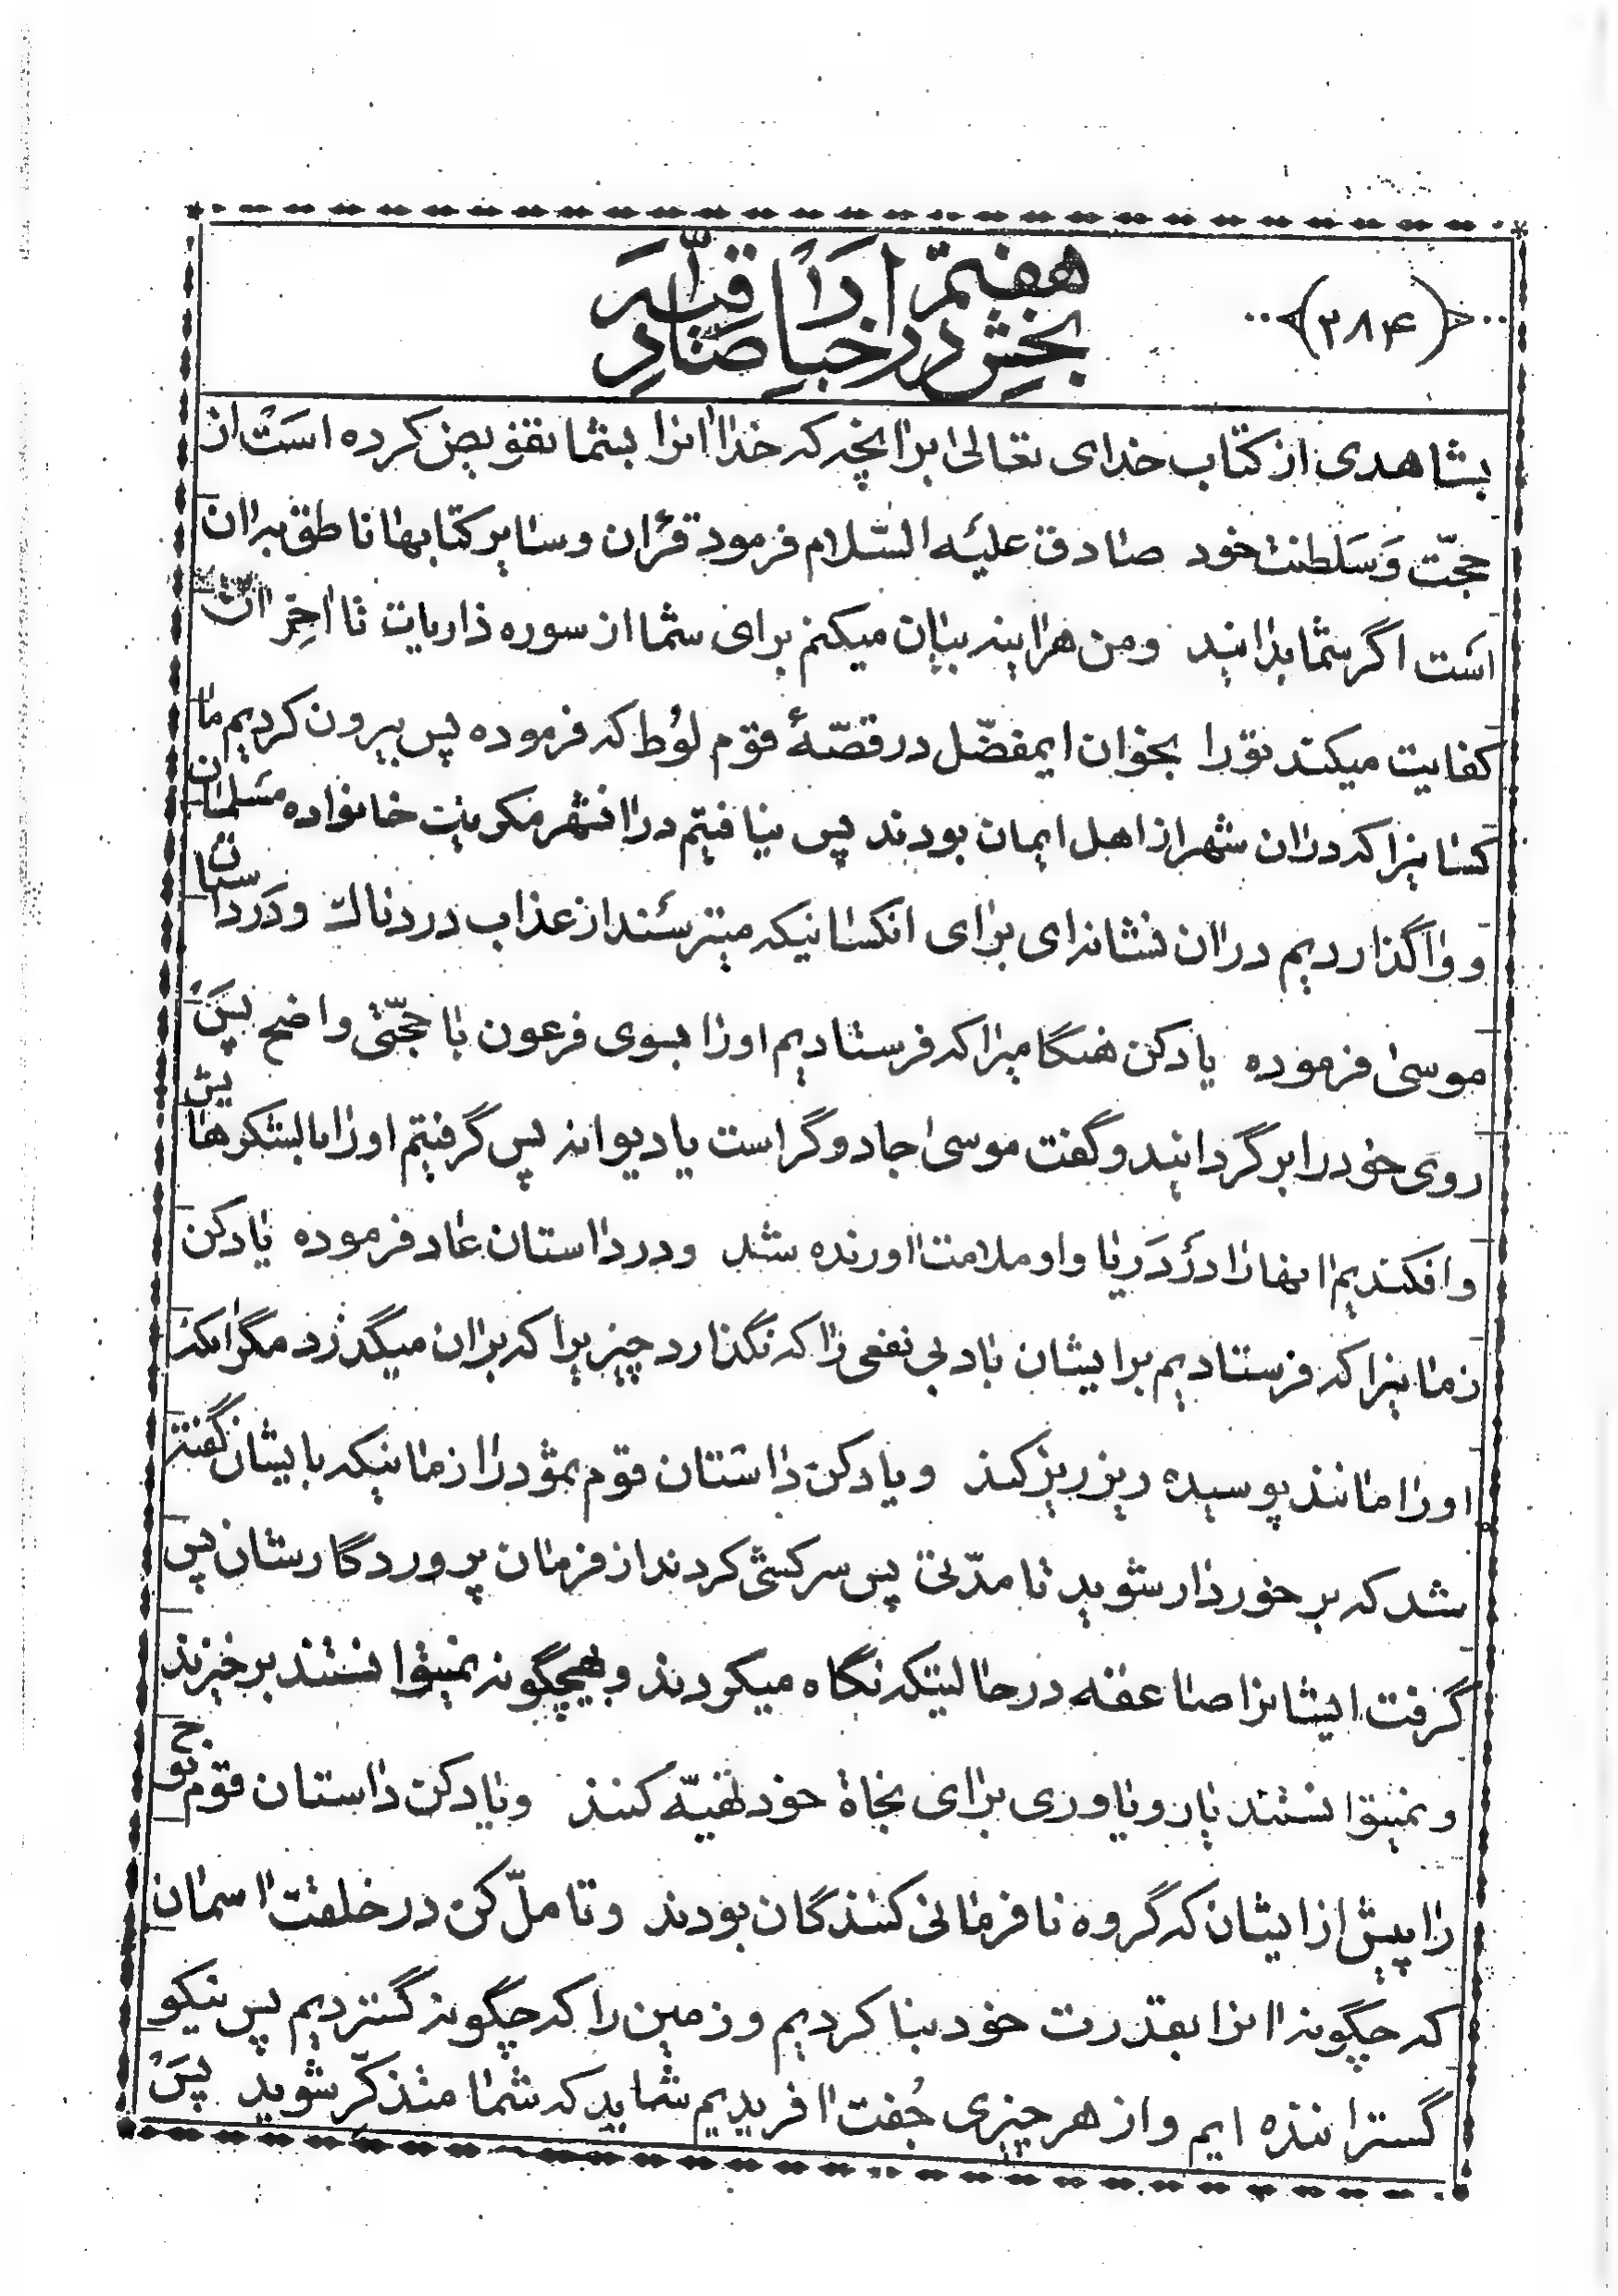 ﴿۲۸۴﴾
بخش هفتم در اخبار صادقیه
بشاهدی از کتاب خدای تعالی برانچه که خدا انرا بشما تفویض کرده است از
حجّت و سلطنت خود صادق علیه السّلام فرمود قرٔان و سایر کتابها ناطق بران
است اگر شما بدانید ومن هراینه بیان میکنم برای شما از سوره ذاریات تا اخِر ان
کفایت میکند تو را بخوان ایمفضّل در قصّهٔ قوم لوُط که فرموده پس بیرون کردیم ما
کسانیرا که دران شهر از اهل ایمان بودند پس نیافتیم درانشهر مکر یک خانواده مسلمان
و واگذاردیم دران نشانه‌ای برای انکسانیکه میترسند از عذاب دردناک و در داستان
موسی فرموده یادکن هنگامیرا که فرستادیم اورا بسوی فرعون با حجّتی واضح پس
روی خود را برگردانید و گفت موسی جادوگر است یا دیوانه پس گرفتیم اورا با لشکرهایش
وافکندیم انهارا در دریا واو ملامت اورنده شد ودر داستان عاد فرموده یادکن
زمانیرا که فرستادیم برایشان باد بی نفعی را که نگذارد چیزیرا که بران میگذرد مگر انکه
اورا مانند پوسیده ریز ریز کند و یادکن داستان قوم ثمود را زمانیکه بایشان گفته
شد که برخوردار شوید تا مدّتی پس سرکشی کردند از فرمان پروردگارشان پس
گرفت ایشانرا صاعقه در حالیتکه نگاه میکردند و بهیچگونه نمیتوانستند برخیزند
و نمیتوانستند یار و یاوری برای نجاة خود تهیّه کنند ویادکن داستان قوم نوح
را پیش از ایشان که گروه نافرمانی کنندگان بودند و تامّل کن در خلقت اسمان
که چگونه انرا بقدرت خود بنا کردیم و زمین را که چگونه گستردیم پس نیکو
گستراننده ایم واز هر چیزی جُفت افریدیم شاید که شما متذکّر شوید پس